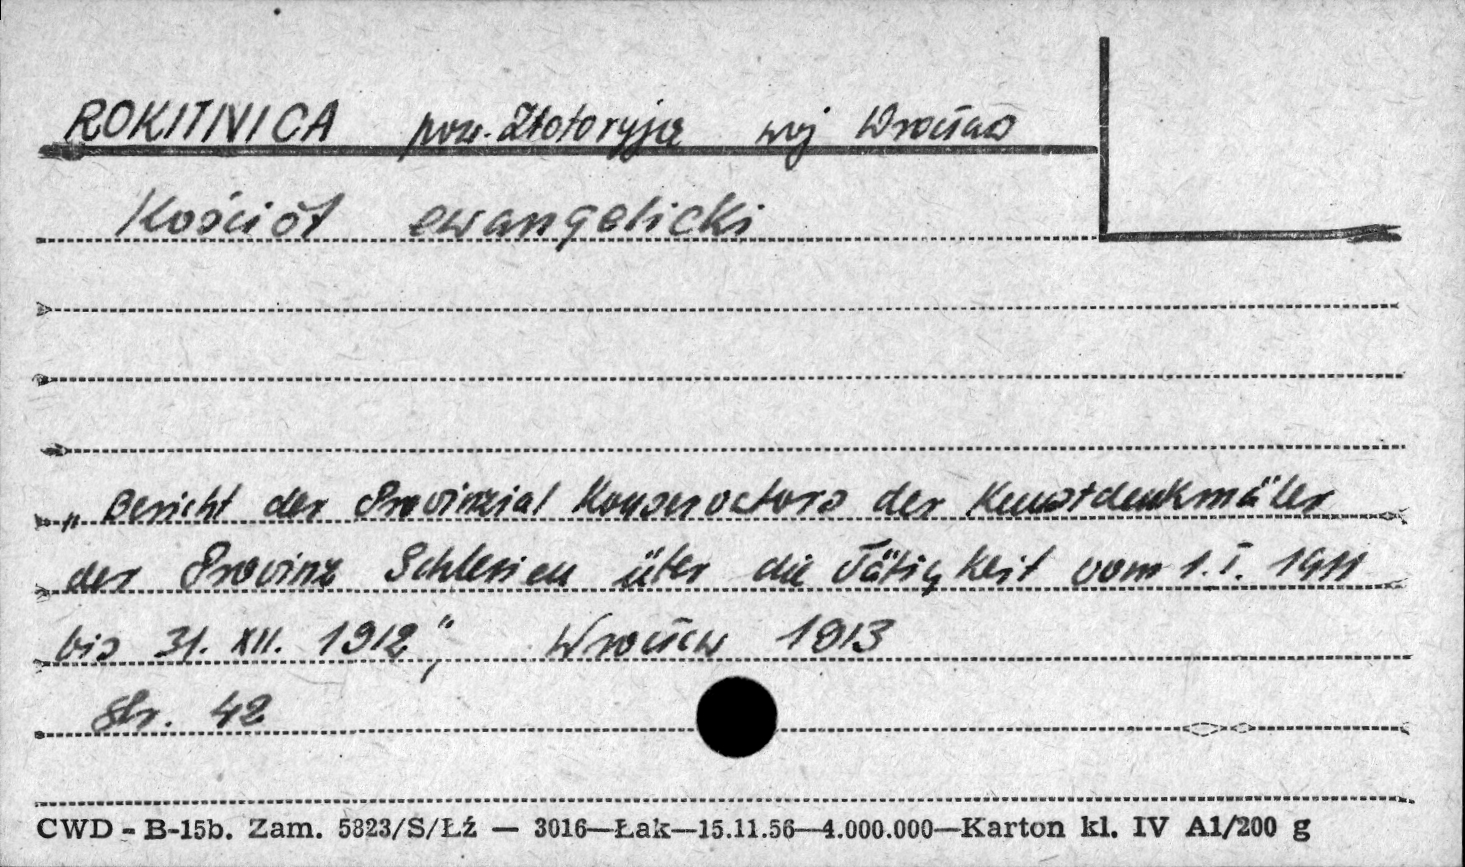 ROKITNICA pow. Złotoryja woj Wrocław
Kościół ewangelicki
„Bericht des Provinzial Konservators der Kunstdenkmäler
der Provinz Schlesien über die Tätigkeit vom 1.I. 1911
bis 31. XII. 1912", Wrocław 1913
Str. 42
CWD - B-15b. Zam. 5823/S/Łź — 3016—Łak—15.11.56—4.000.000—Karton kl. IV A1/200 g